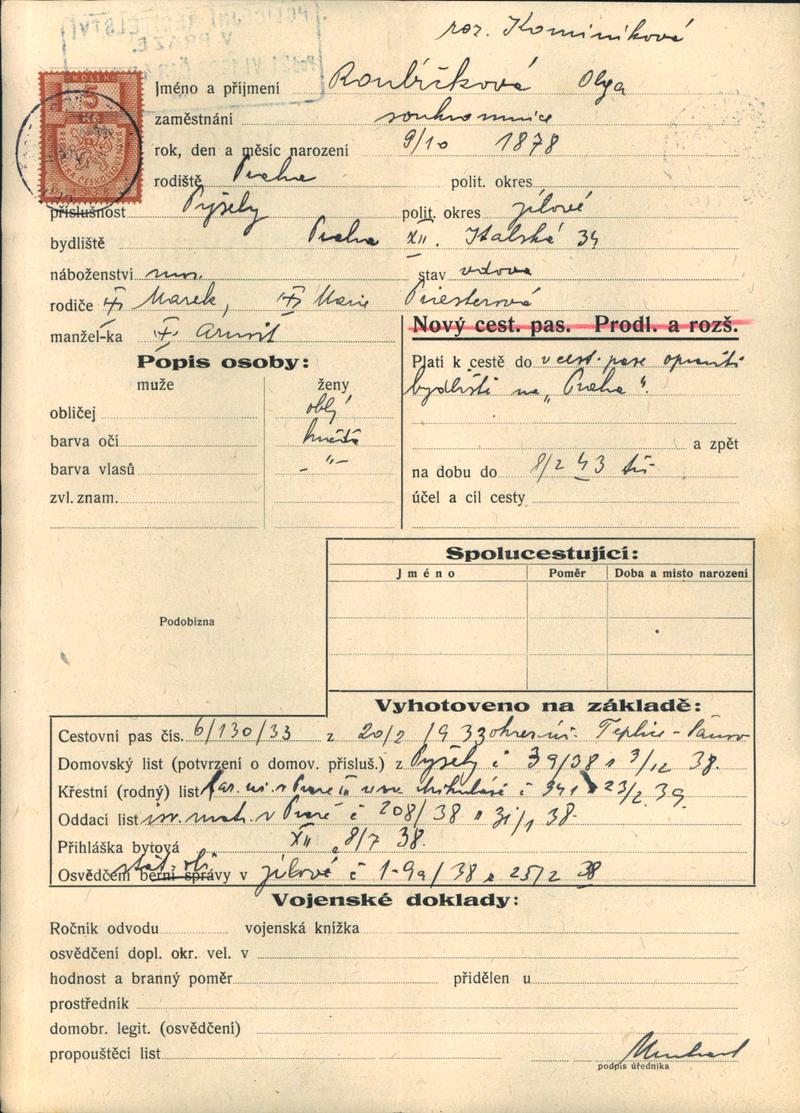 roz. Kominiková
POLICEJNÍ ŘEDITELSTVÍ
V PRAZE.
KOLEK
5
Jméno a příjmení Roubíčková Olga
zaměstnání soukromnice
rok, den a měsíc narození 9/10 1878
rodiště Praha polit. okres
příslušnost Pyšely polit. okres Jílové
bydliště Praha XII. Italská 34
náboženství stav vdova
rodiče Marek, Marie Piesterová
manžel-ka Arnošt
Nový cest. pas. Prodl. a rozš.
Popis osoby:
Platí k cestě do v cest. pase opraviti
muže ženy
bydliště na „Praha“.
obličej oblý
barva očí hnědá
a zpět
barva vlasů -"-
na dobu do 8/2 43
zvl. znam.
účel a cíl cesty
Spolucestující:
Jméno Poměr Doba a místo narození
Podobizna
Vyhotoveno na základě:
Cestovní pas čís. 6/130/33 z 20/2 1933 okres. úř. Teplice-Šanov
Domovský list (potvrzení o domov. přísluš.) z Pyšely č 39/38 3/12 38.
Křestní (rodný) list č 341 23/2 39.
Oddací list isr. matr. v Praze č 208/38 31/1 38.
Přihláška bytová XII 8/7 38.
Osvědčení berní správy stát. obč. v Jílové č 1-9a/38 25/2 38
Vojenské doklady:
Ročník odvodu vojenská knížka
osvědčení dopl. okr. vel. v
hodnost a branný poměr přidělen u
prostředník
domobr. legit. (osvědčení)
propouštěcí list
podpis úředníka